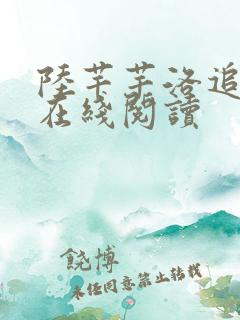 陸芊芊洛追
在綫閱讀
饒博
未经同意禁止转载